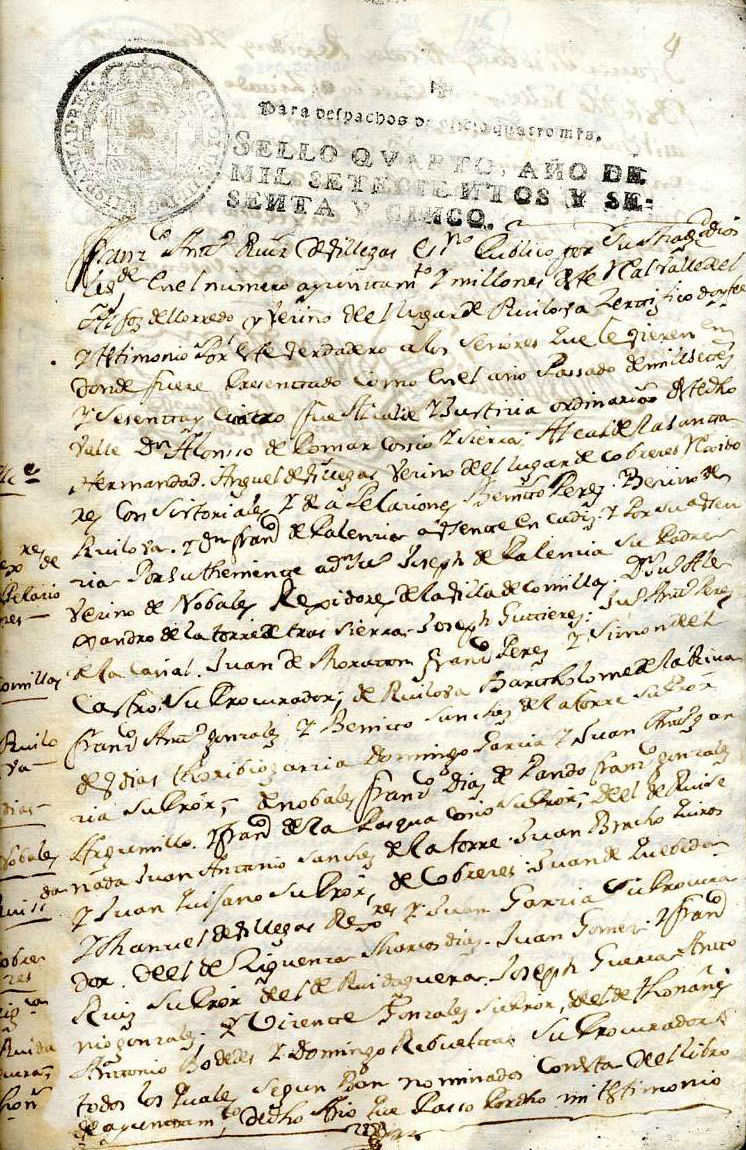 4
Para despachos de oficio quatro mrs.
SELLO QVARTO, AÑO DE
MIL SETECIENTOS Y SE-
SENTA Y CINCO.
Franco Antto Ruiz de Villegas essno Publico por Su Magd Dios
le gde en el numero ayuntamto y millones deste Real Valle del
Alfoz de lloredo y vezino del lugar de Ruiloba Zertifico doy fee
y testimonio Por este verdadero a los Señores que le vieren en
donde fuere Presentado Como en el año Passado de mill settes
y Sesenta y Cuatro fue Alcalde y Justicia ordinario deste dho
valle Dn Alonso de Pomar Cossio y Sierra, Alcalde de la Santa
Hermandad. Anguel de Villegas vecino del lugar de Cobreces Rexido
res Consistoriales y de apelaciones Benito Perez. Vezino de
Ruilova. y Dn Franco de Palencia ausente en Cadiz y Por su ausen
cia Por su theniente Joseph de Palencia su Padre
vezino de Nobales Rexidores de la villa de Comillas. Dn Ale
xandro de la torre de tras Sierra Joseph Guttierez. Jun Antto Perez
de la Canal. Juan de Franco Perez y Simon del
Castro, su Procurador; de Ruiloba Bartholome de la
Franco Antto gonzalez y Benito Sanchez de la torre su Prór
de Vdias thoribio garcia Domingo Garcia y Juan
ria su Prór; de nobales Franco Dias de Pando Franco gonzalez
Argumillo. y Franco de la Pasqua Cosio su Prór; del de Ruise
ñada Juan Antonio Sanchez de la torre. Juan
y Juan su Prór, de Cobreces. Juan de Quebedo
y Manuel de Villegas Rexres y Juan Garcia su Procura
dor. del de Ziguenza Marcos dias. Juan Gomez. y Franco
Ruiz su Prór del de Ruidaguera. Joseph Guerra Anto
nio gonzalez. y Vicente Gonzales su Prór, del de thoñanes
Antonio y Domingo Rebueltas su Procurador
todos los quales segun Ban nominados Consta del libro
de ayuntamto de dho Año que Passo Por dho mi testimonio
Comillas
Ruilo
va
Nobales